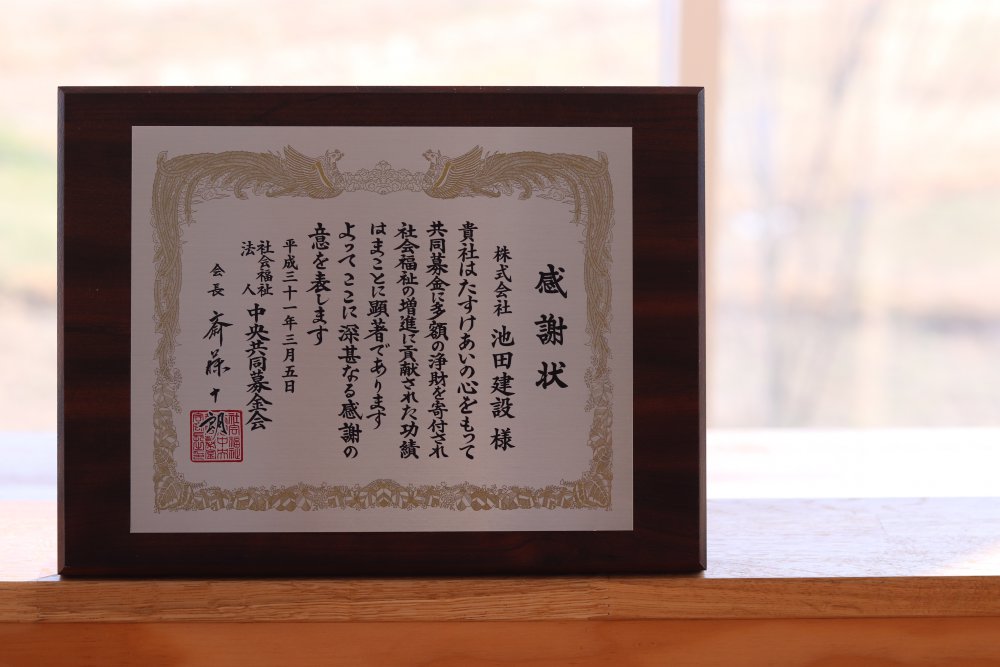 感謝状
株式会社 池田建設 様
貴社はたすけあいの心をもって
共同募金に多額の浄財を寄付され
社会福祉の増進に貢献された功績
はまことに顕著であります
よってここに深甚なる感謝の
意を表します
平成三十一年三月五日
社会福祉法人 中央共同募金会
会長 斎藤十朗